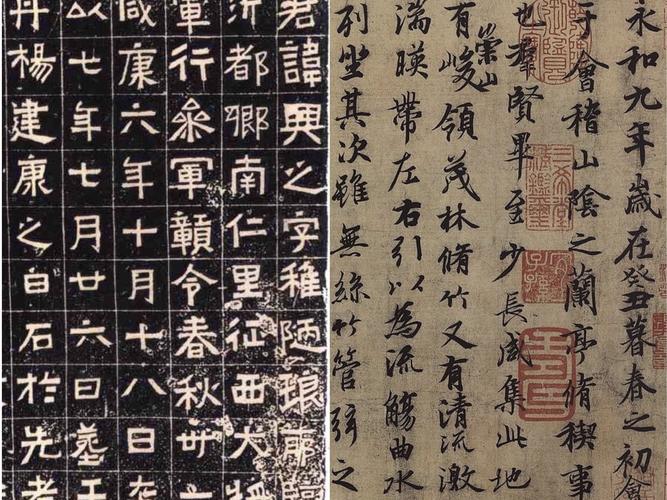 君諱興之字稚陋琅耶臨
沂都鄉南仁里征西大將
軍行參軍贛令春秋卅一
咸康六年十月十八日卒
以七年七月廿六日葬于
丹楊建康之白石於先考
永和九年歲在癸丑暮春之初會
于會稽山陰之蘭亭脩稧事
也羣賢畢至少長咸集此地
有崇山峻領茂林脩竹又有清流激
湍暎帶左右引以為流觴曲水
列坐其次雖無絲竹管弦之